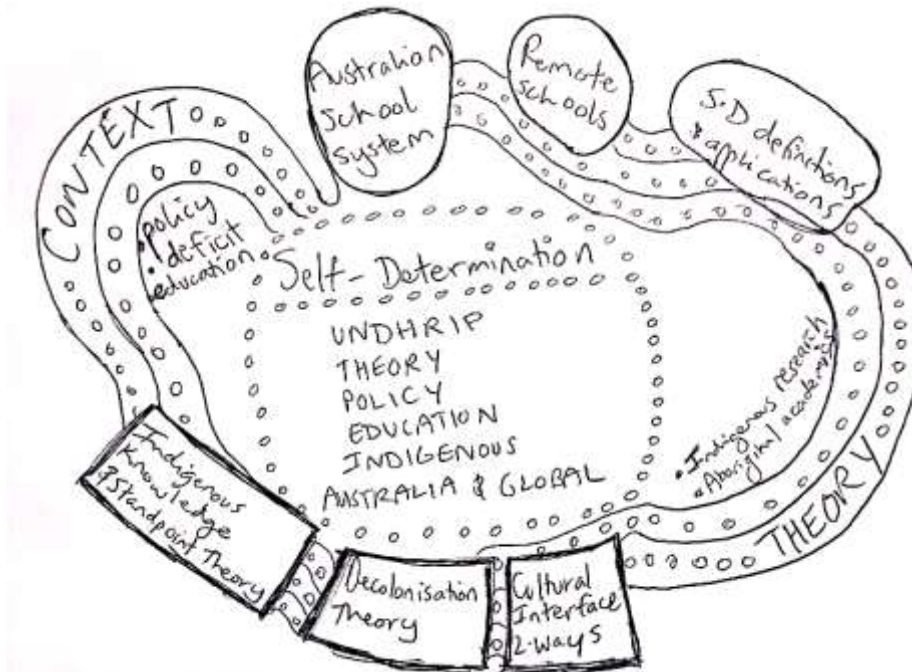 Australian
School
system
Remote
schools
S.D definitions
& applications
CONTEXT
• policy
• deficit
• education
Self-Determination
UNDHRIP
THEORY
POLICY
EDUCATION
INDIGENOUS
AUSTRALIA & GLOBAL
• Indigenous research
• Aboriginal academics
THEORY
Indigenous
Knowledge
& Standpoint Theory
Decolonisation
Theory
Cultural
Interface
2-ways